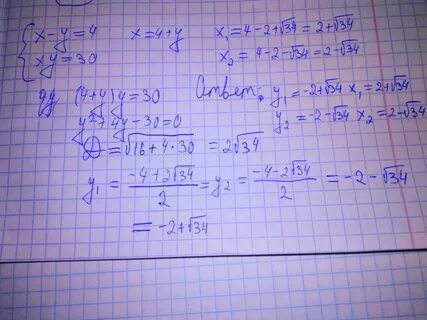 { x-y=4    x=4+y    x₁=4-2+√34=2+√34
xy=30    x₂=4-2-√34=2-√34
(4+y)y=30    Ответ: y₁=-2+√34 x₁=2+√34
y²+4y-30=0    y₂=-2-√34 x₂=2-√34
D=√16+4·30=2√34
y₁=(-4+2√34)/2= y₂=(-4-2√34)/2=-2-√34
=-2+√34